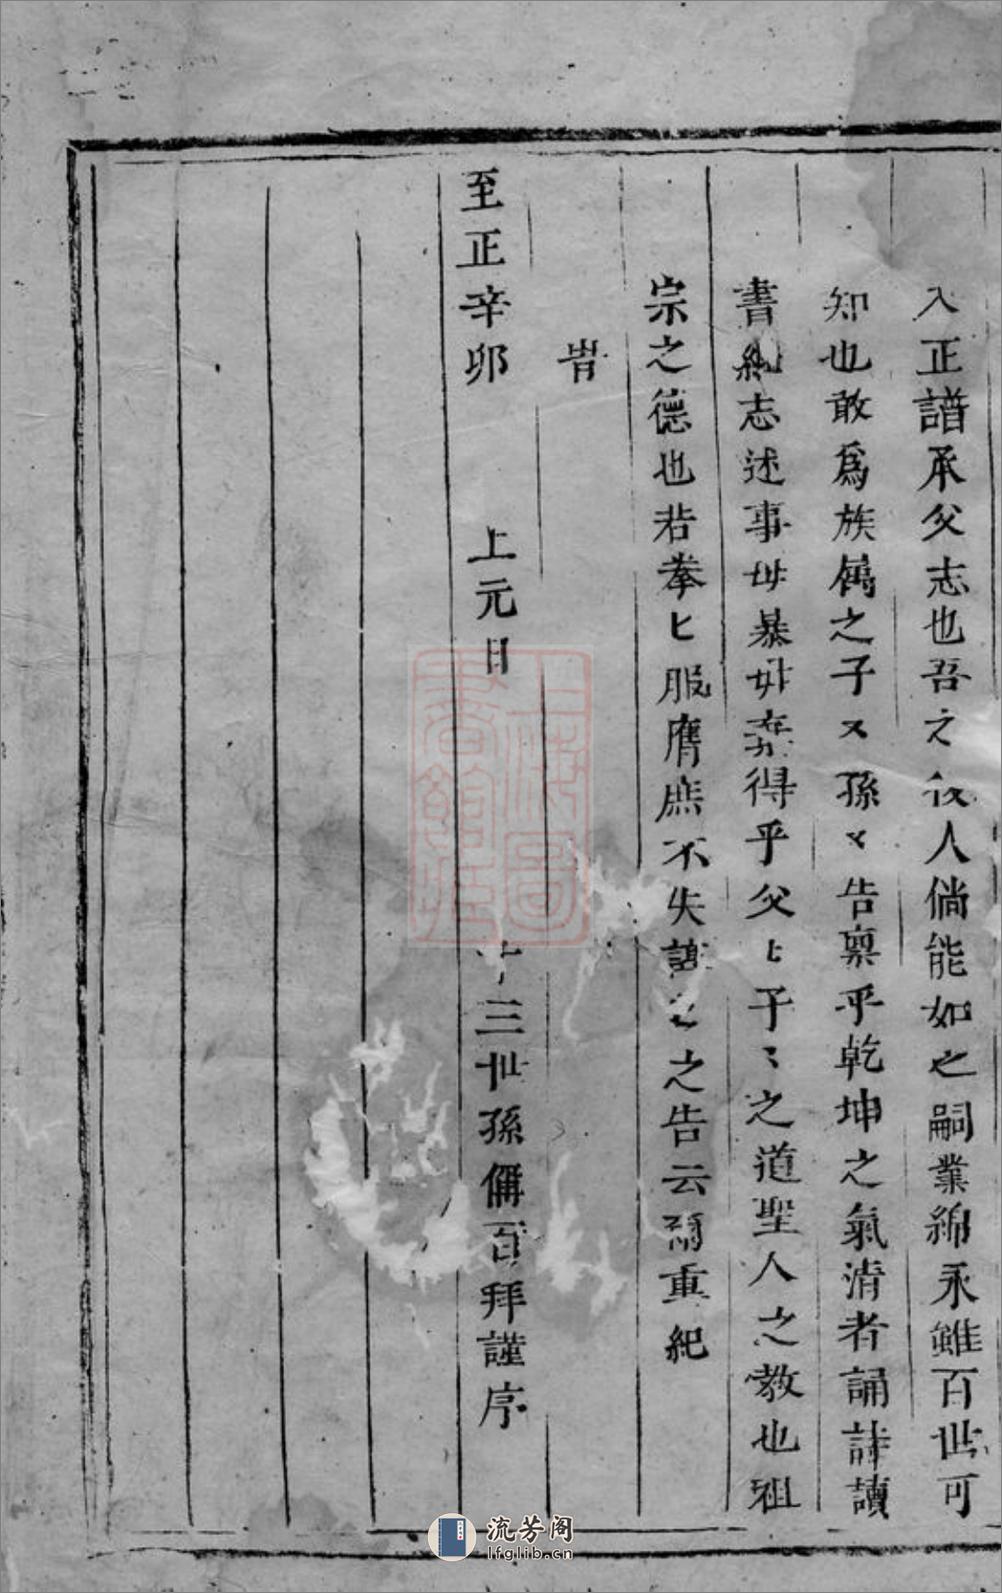 入正譜承父志也吾之後人倘能如之嗣業綿永雖百世可
知也敢爲族属之子又孫々告稟乎乾坤之氣清者誦詩讀
書継志述事毋暴毋棄得乎父匕子〻之道聖人之教也祖
宗之德也若拳匕服膺庶不失謹之之告云爾重紀
旹
至正辛卯 上元日 十三世孫儞百拜謹序
流芳阁
lfglib.cn